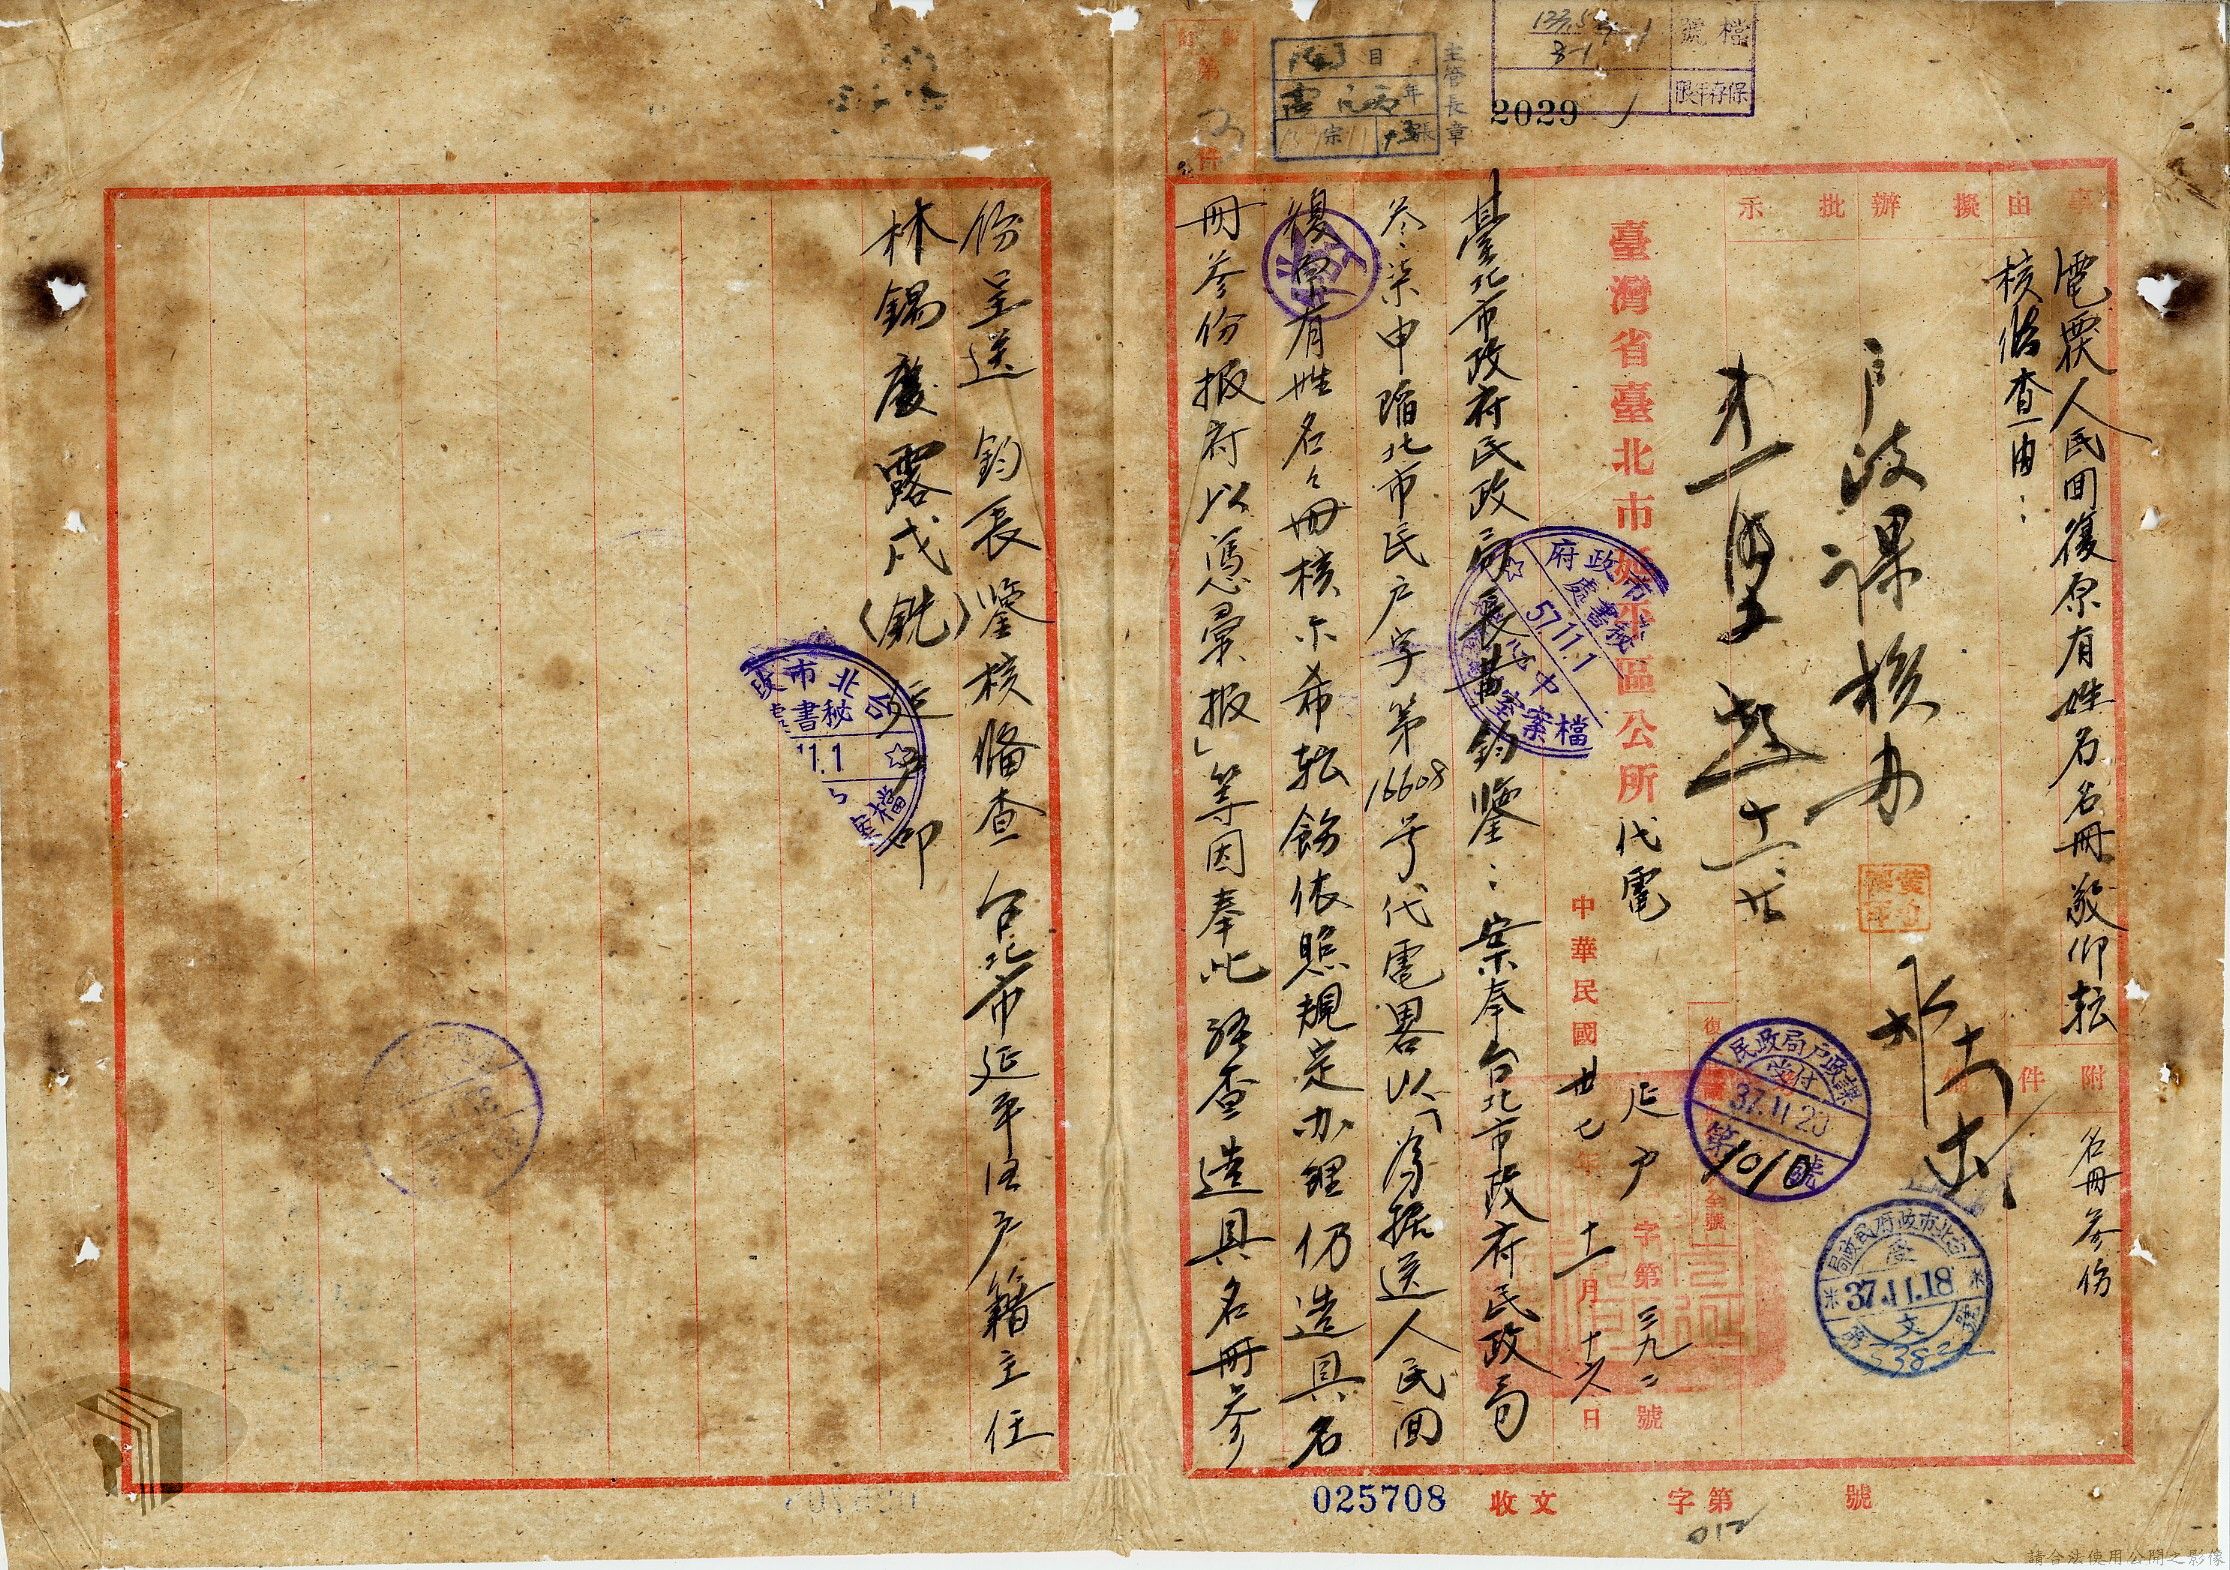 檔號
保存年限
2029
主管長章
目
年
宗
事由
擬辦
批示
電覆人民回復原有姓名名冊敬仰転
核俻查由：
附件
名冊參份
戶政課核办
臺灣省臺北市延平區公所
代電
中華民國卅七年十一月十六日
延戶字第三九二號
民政局戶政課
受付
37.11.20
第1010號
台北市政府民政局
收文
37.11.18
市政府
秘書處
57.11.1
檔案室
臺北市政府民政局長黄鈞鑒：案奉台北市政府民政局
叄柒申陷北市民戶字第16608号代電畧以「為據送人民回
復原有姓名名冊核示希転飭依照規定办理仍造具名
冊參份报府以憑彙报」等因奉此經查造具名冊參
份呈送 鈞長鑒核俻查 台北市延平區戶籍主任
林錫慶露戍（銑）延戶印
台北市政
秘書處
11.1
檔案室
025708
收文
字第
號
012
請合法使用公開之影像